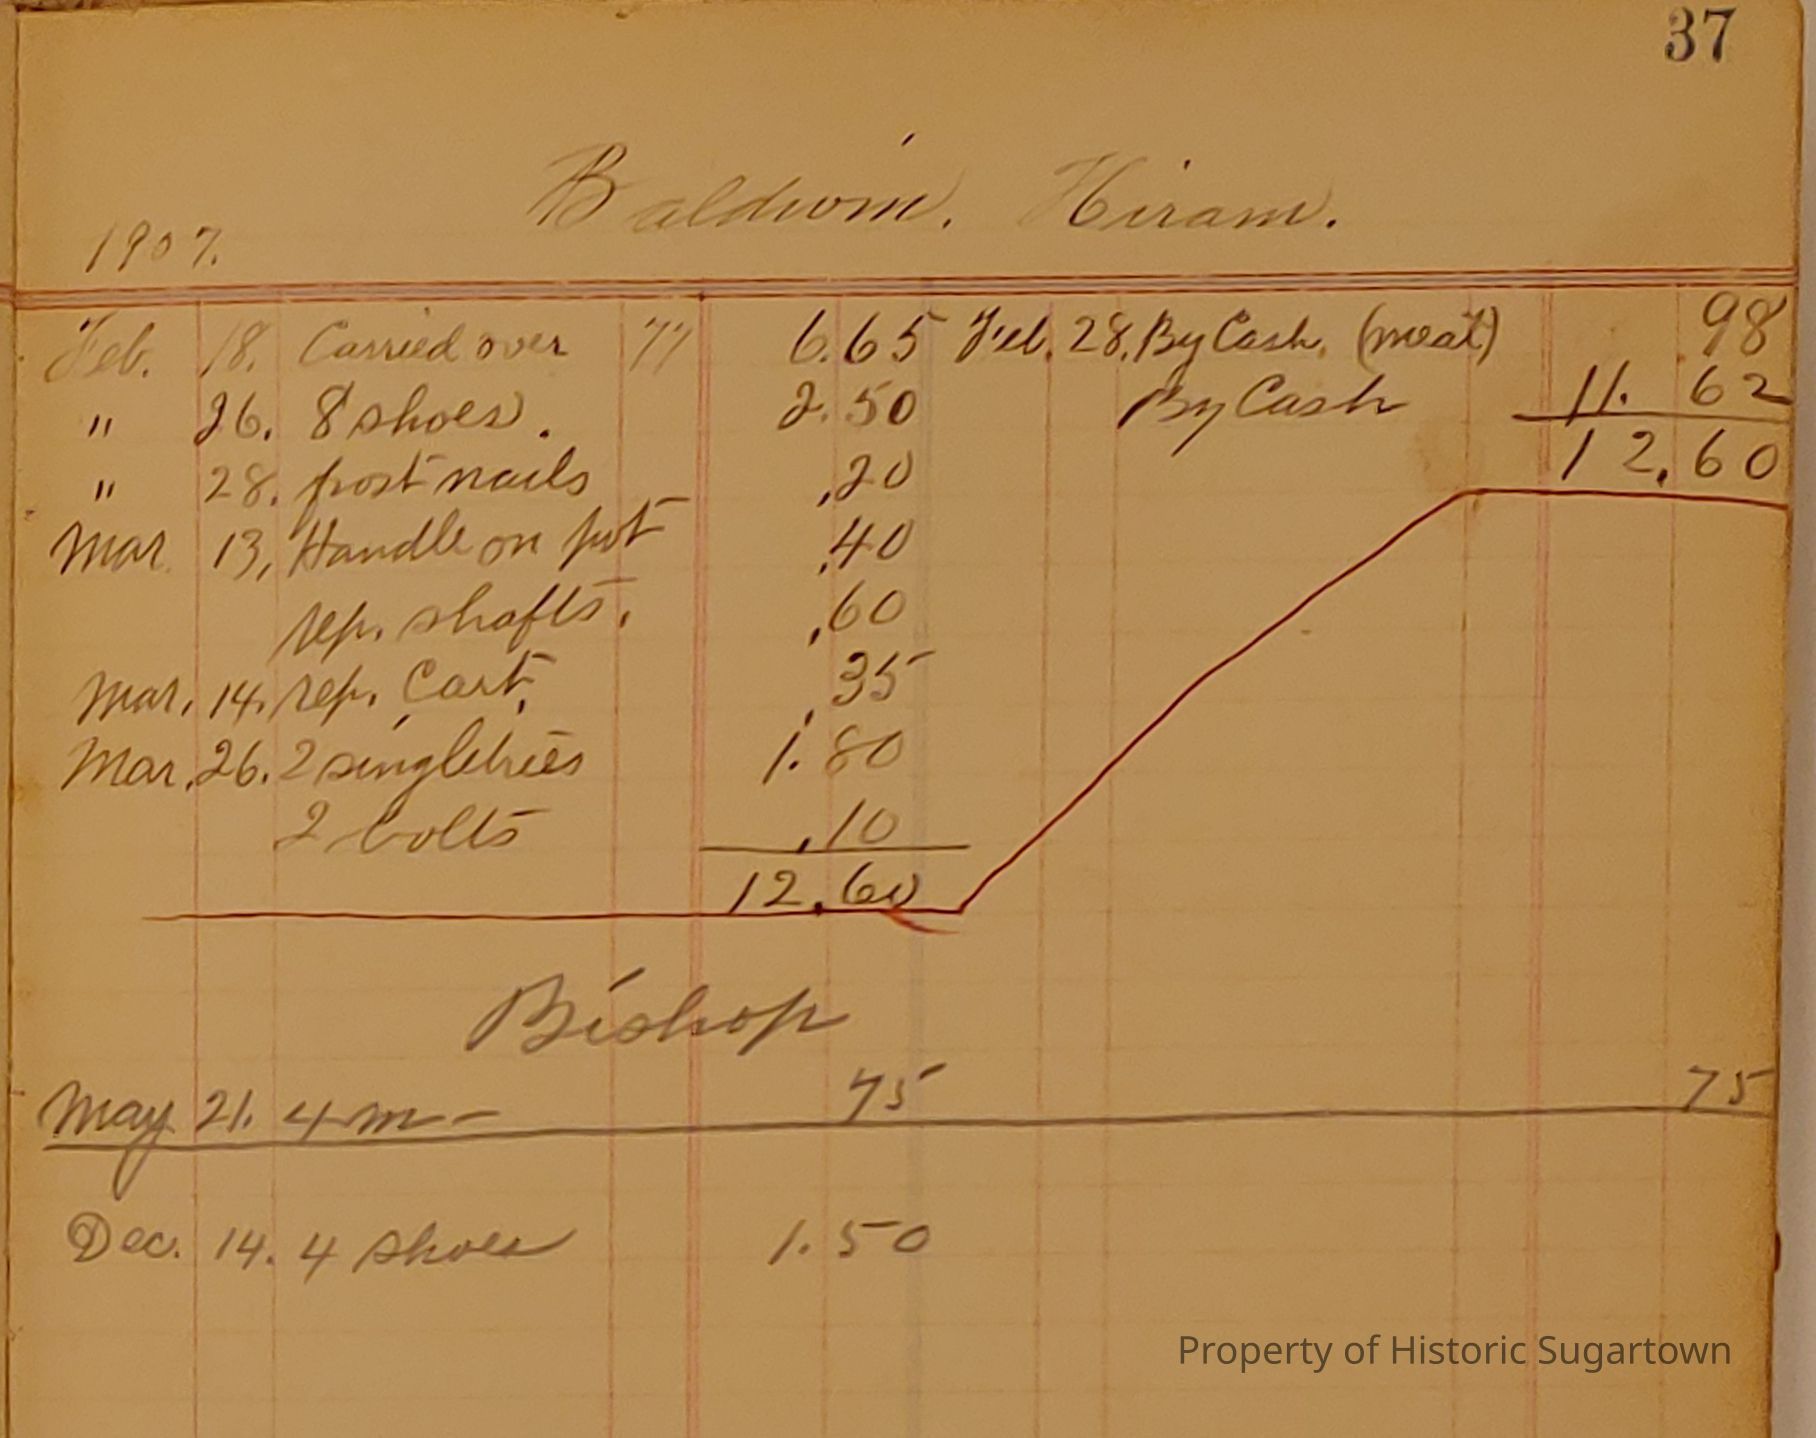 37
Baldwin. Hiram.
1907.
Feb. 18. Carried over 77 6.65 Feb. 28. By Cash. (meat) .98
" 26. 8 shoes. 2.50 By Cash 11. 62
" 28. frost nails .20 12.60
Mar. 13, Handle on pot .40
rep. shafts. .60
Mar. 14. rep. Cart. .35
Mar. 26. 2 singletrees 1.80
2 bolts .10
12.60
Bishop
May 21. 4 m- 75 75
Dec. 14. 4 shoes 1.50
Property of Historic Sugartown